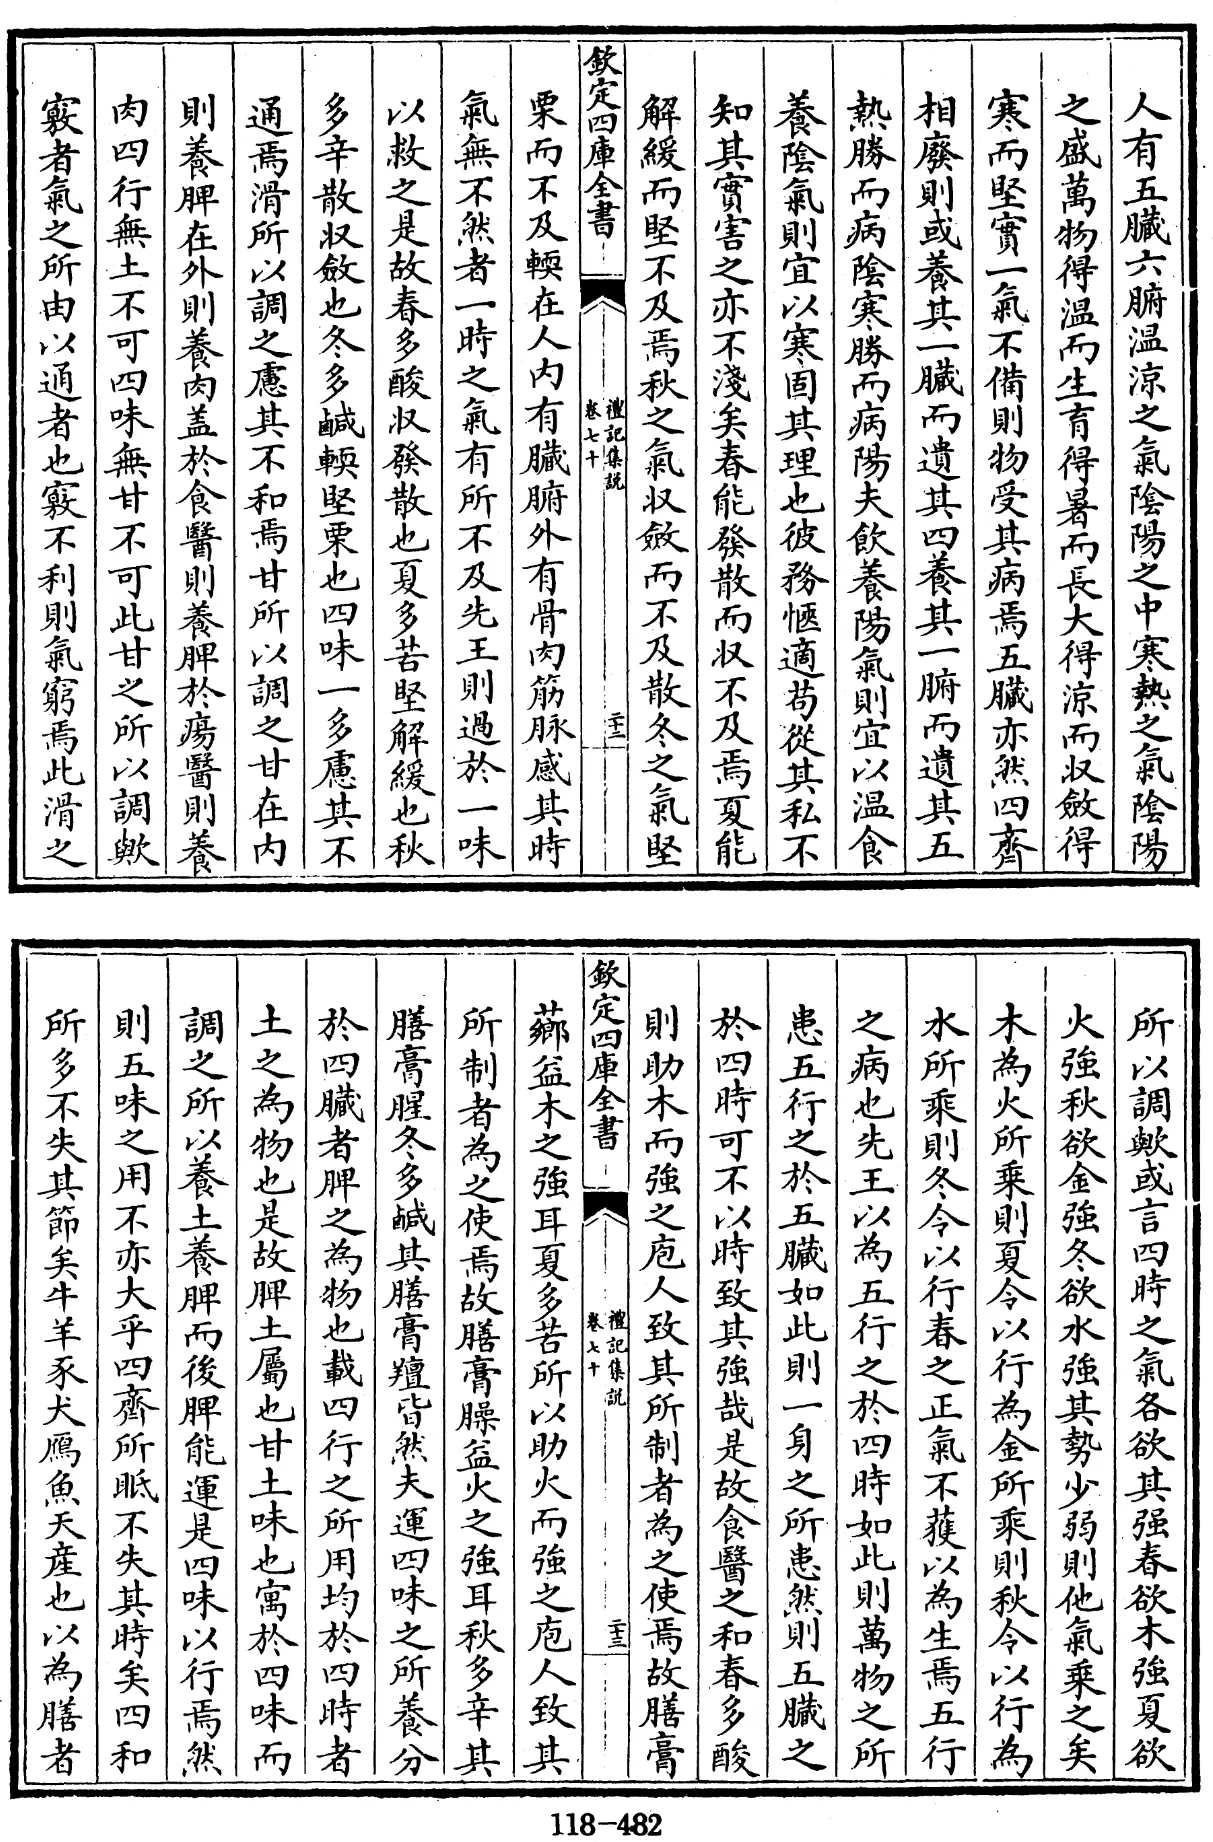 人有五臟六腑温涼之氣陰陽之中寒熱之氣陰陽
之盛萬物得温而生育得暑而長大得涼而収斂得
寒而堅實一氣不備則物受其病焉五臟亦然四齊
相廢則或養其一臟而遺其四養其一腑而遺其五
熱勝而病陰寒勝而病陽夫飲養陽氣則宜以温食
養陰氣則宜以寒固其理也彼務愜適苟從其私不
知其實害之亦不淺矣春能發散而収不及焉夏能
解緩而堅不及焉秋之氣収斂而不及散冬之氣堅
欽定四庫全書
禮記集説
卷七十
二十二
栗而不及輭在人内有臟腑外有骨肉筋脉感其時
氣無不然者一時之氣有所不及先王則過於一味
以救之是故春多酸収發散也夏多苦堅解緩也秋
多辛散収斂也冬多鹹輭堅栗也四味一多慮其不
通焉滑所以調之慮其不和焉甘所以調之甘在内
則養脾在外則養肉盖於食醫則養脾於瘍醫則養
肉四行無土不可四味無甘不可此甘之所以調歟
竅者氣之所由以通者也竅不利則氣窮焉此滑之
所以調歟或言四時之氣各欲其强春欲木強夏欲
火強秋欲金強冬欲水強其勢少弱則他氣乘之矣
木為火所乘則夏令以行為金所乘則秋令以行為
水所乘則冬令以行春之正氣不獲以為生焉五行
之病也先王以為五行之於四時如此則萬物之所
患五行之於五臟如此則一身之所患然則五臟之
於四時可不以時致其強哉是故食醫之和春多酸
則助木而強之庖人致其所制者為之使焉故膳膏
欽定四庫全書
禮記集説
卷七十
二十三
薌益木之強耳夏多苦所以助火而強之庖人致其
所制者為之使焉故膳膏臊益火之強耳秋多辛其
膳膏腥冬多鹹其膳膏羶皆然夫運四味之所養分
於四臟者脾之為物也載四行之所用均於四時者
土之為物也是故脾土屬也甘土味也寓於四味而
調之所以養土養脾而後脾能運是四味以行焉然
則五味之用不亦大乎四齊所眡不失其時矣四和
所多不失其節矣牛羊豕犬鴈魚天産也以為膳者
118-482